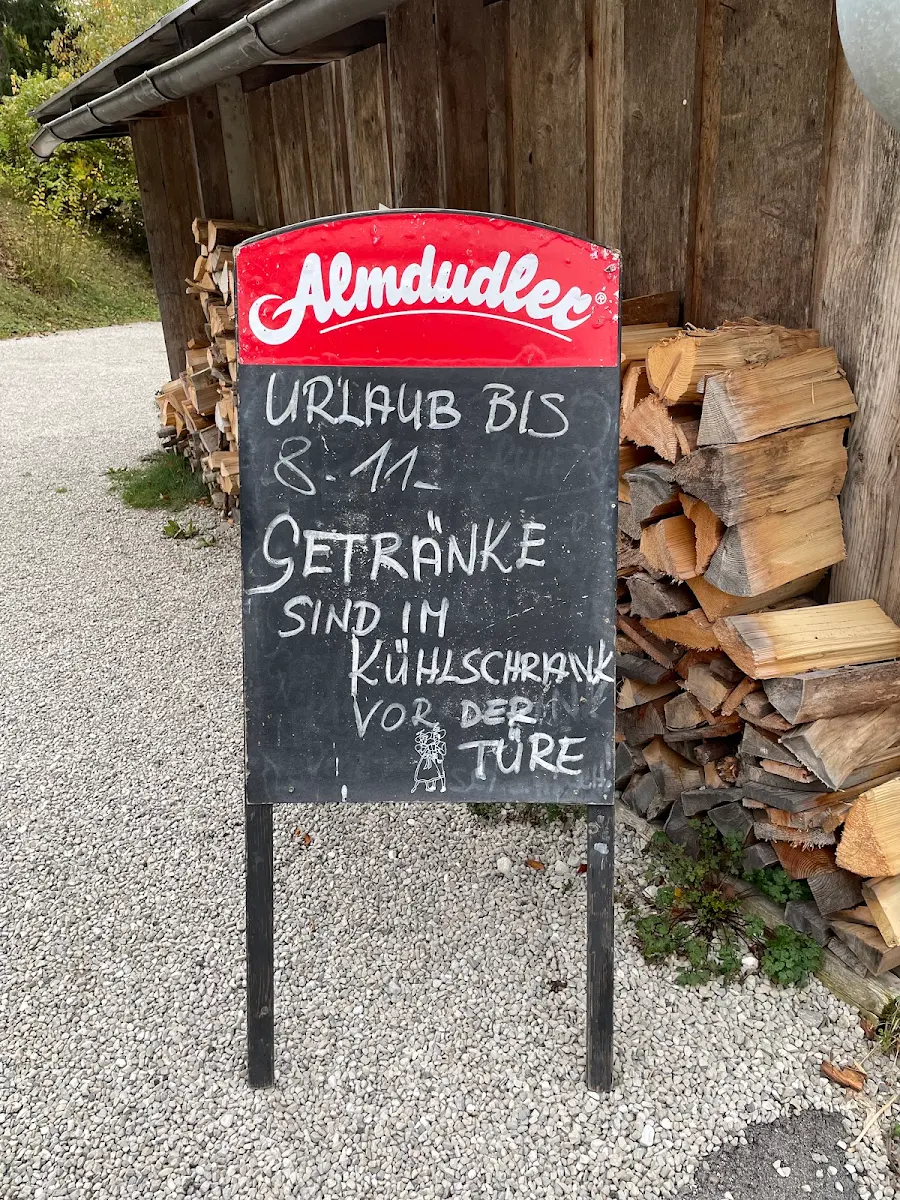 Almdudler®
URLAUB BIS
8.11.
GETRÄNKE
SIND IM
KÜHLSCHRANK
VOR DER
TÜRE